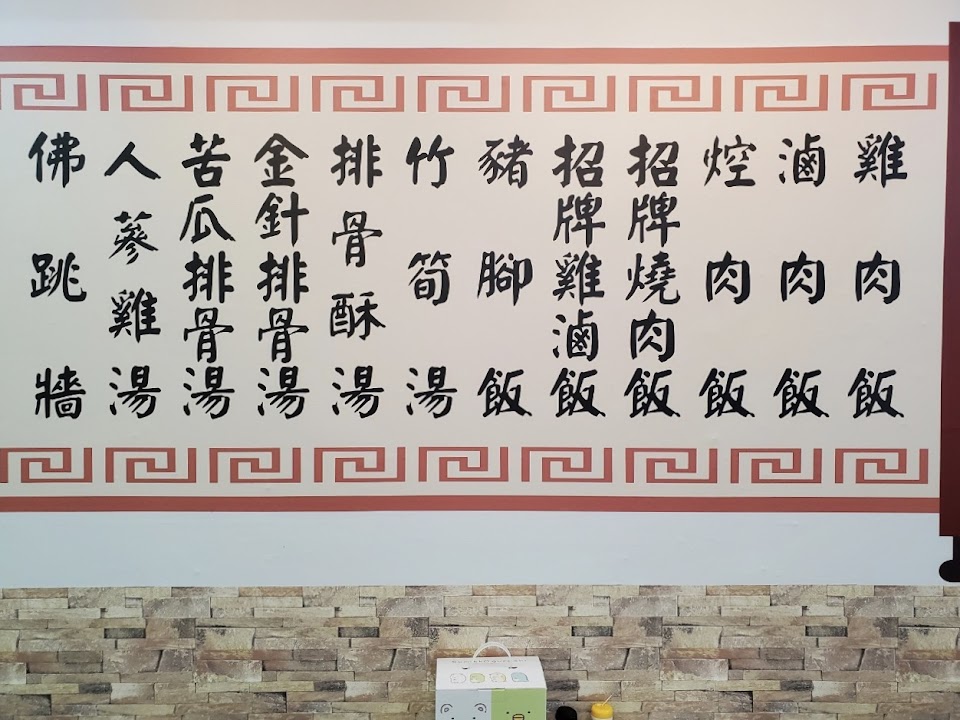 雞肉飯
滷肉飯
焢肉飯
招牌燒肉飯
招牌雞滷飯
豬腳飯
竹筍湯
排骨酥湯
金針排骨湯
苦瓜排骨湯
人蔘雞湯
佛跳牆